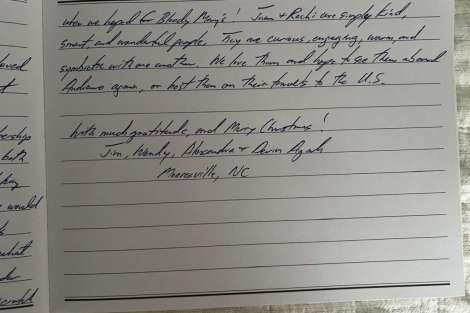 when we hoped for Bloody Mary's! Juan & Rochi are simply kind,
smart and wonderful people. They are curious, engaging, warm, and
symbiotic with one another. We love them and hope to see them aboard
Andiamo again, or host them on their travels to the U.S.
With much gratitude, and Merry Christmas!
Jim, Wendy, Alexandra & Devin
Mooresville, NC
both
would
what